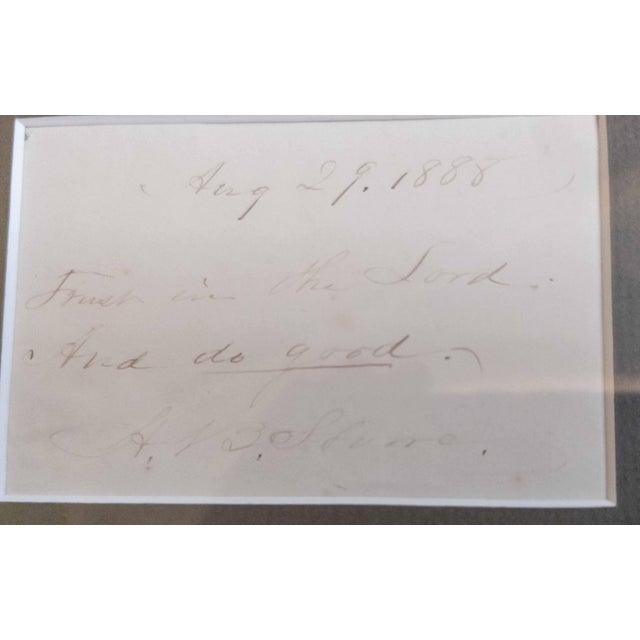 Aug 29. 1888
Trust in the Lord.
And do good.